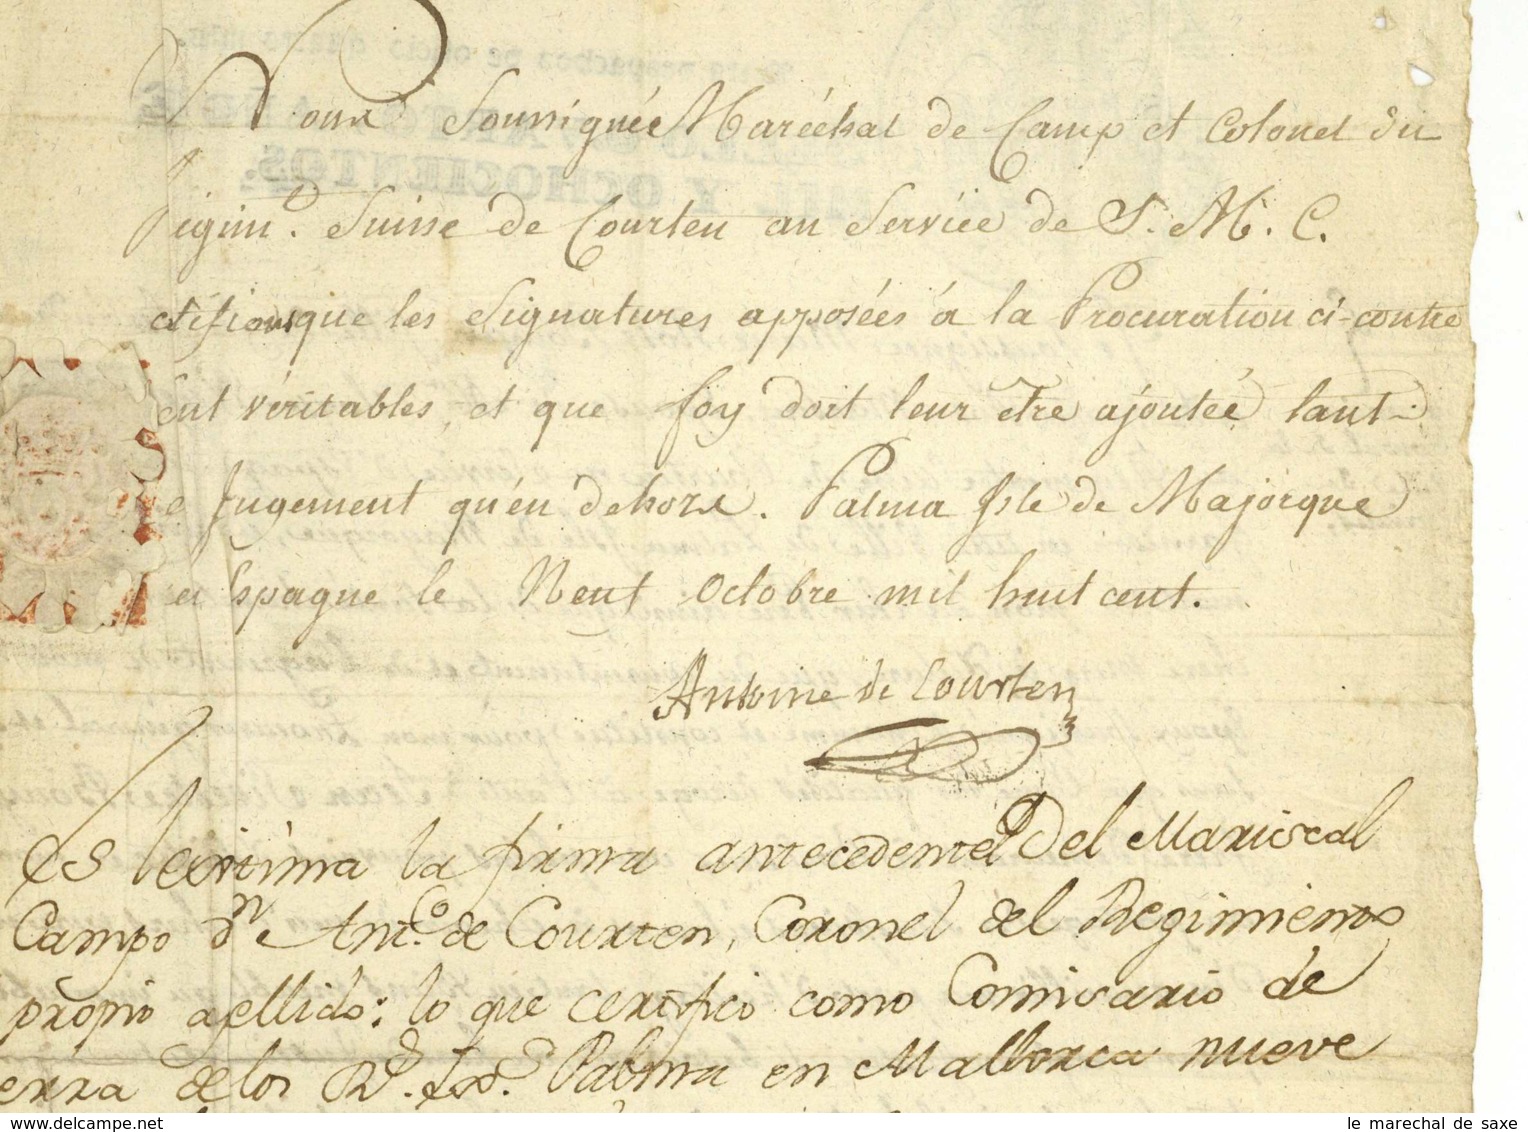 Nous Soussignée Maréchal de Camp et Colonel du
Régimt. Suisse de Courten au Service de S. M. C.
ctifions que les Signatures apposées à la Procuration ci-contre
sont véritables, et que foy doit leur être ajoutée tant
e Jugement qu'en dehors. Palma Isle de Majorque
en Espagne le Neuf Octobre mil huit cent.
Antoine de Courten
Es lexitima la firma antecedente Del Mariscal
Campo Dn. Anto. de Courten, Coronel del Regimiento
propio apellido: lo que certifico como Comisario de
erra de los Rs. Exs. Palma en Mallorca nueve
www.delcampe.net
le marechal de saxe